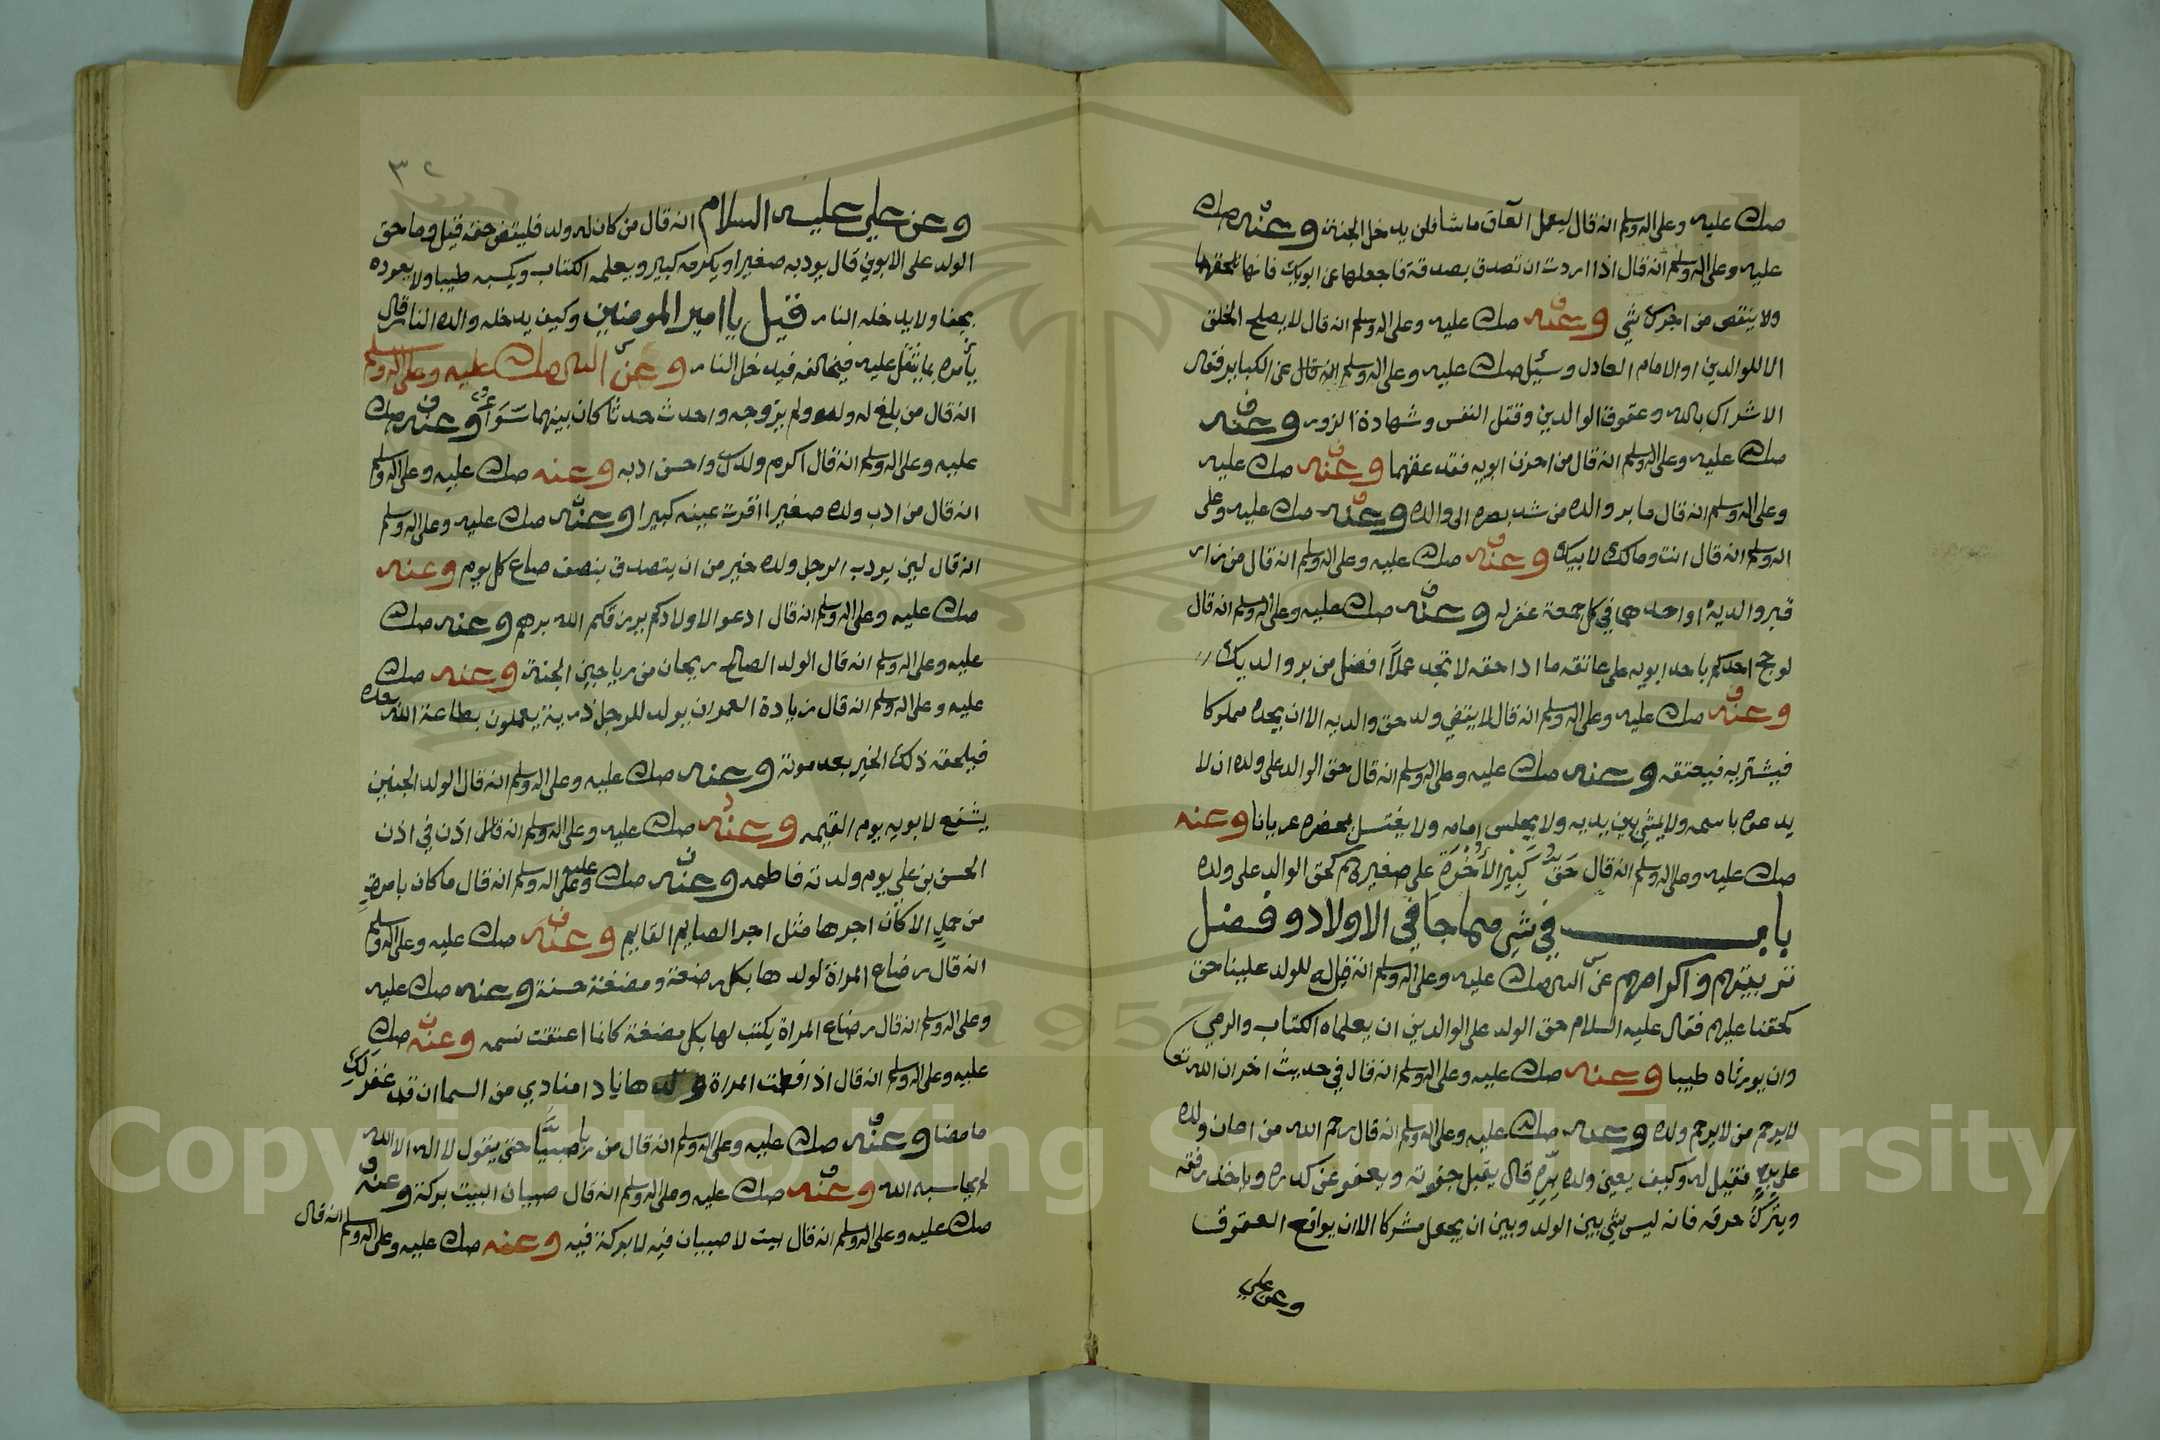 صلى عليه وعلى اله وسلم انه قال ليعمل العاق ما شا فلن يدخل الجنة وعنه صلى
عليه وعلى اله وسلم انه قال اذا اردت ان تصدق بصدقة فاجعلها عن ابويك فانها تلحقهما
ولا ينتقص من اجرك شي وعنه صلى عليه وعلى اله وسلم انه قال لا يصلح الملق
الا للوالدين او الامام العادل وسئل صلى عليه وعلى اله وسلم عن الكباير فقال
الاشراك بالله وعقوق الوالدين وقتل النفس وشهادة الزور وعنه
صلى عليه وعلى اله وسلم انه قال من احزن ابويه فقد عقهما وعنه صلى عليه
وعلى اله وسلم انه قال ما بر والده من شد بصره الى والده وعنه صلى عليه وعلى
اله وسلم انه قال انت ومالك لابيك وعنه صلى عليه وعلى اله وسلم انه قال من زار
قبر والديه او احدهما في كل جمعة غفر له وعنه صلى عليه وعلى اله وسلم انه قال
لو حج احدكم باحد ابويه على عاتقه ما ادا حقه لا تجد عملا افضل من بر والديك
وعنه صلى عليه وعلى اله وسلم انه قال لا يقضي ولد حق والديه الا ان يجده مملوكا
فيشتريه فيعتقه وعنه صلى عليه وعلى اله وسلم انه قال حق الوالد على ولده ان لا
يدعوه باسمه ولا يمشي بين يديه ولا يجلس امامه ولا يغتسل بمحضره عريانا وعنه
صلى عليه وعلى اله وسلم انه قال حق كبير الاخوة على صغيرهم كحق الوالد على ولده
باب في شي مما جا في الاولاد وفضل
تربيتهم واكرامهم عن النبي صلى عليه وعلى اله وسلم انه قيل له للولد علينا حق
كحقنا عليهم فقال عليه السلام حق الولد على الوالدين ان يعلماه الكتاب والرمي
وان يورثاه طيبا وعنه صلى عليه وعلى اله وسلم انه قال في حديث اخر ان الله تعا
لا يرحم من لا يرحم ولده وعنه صلى عليه وعلى اله وسلم انه قال رحم الله من اعان ولده
على بره فقيل له وكيف يعين ولده بره قال يقبل جفوته ويعفو عن كدره وياخذ رفقه
ويترك حرقه فانه ليس شي بين الولد وبين ان يجعل مشركا الا ان يواقع العقوق
وعن علي
٣٢
وعن علي عليه السلام انه قال من كان له ولد فليقض حقه قيل وما حق
الولد على الابوين قال يودبه صغيرا ويكرمه كبيرا ويعلمه الكتاب ويكسبه طيبا ولا يعوده
بجفا ولا يدخله النار قيل يا امير المومنين وكيف يدخله والده النار قال
يأمره بما يثقل عليه فيخالفه فيدخل النار وعن النبي صلى عليه وعلى اله وسلم
انه قال من بلغ له ولد ولم يزوجه واحدث حدثا كان بينهما سوآ وعنه صلى
عليه وعلى اله وسلم انه قال اكرم ولدك واحسن ادبه وعنه صلى عليه وعلى اله وسلم
انه قال من ادب ولده صغيرا اقرت عينه كبيرا وعنه صلى عليه وعلى اله وسلم
انه قال لين يودب الرجل ولده خير من ان يتصدق بنصف صاع كل يوم وعنه
صلى عليه وعلى اله وسلم انه قال ادعو الاولادكم يرزقكم الله برهم وعنه صلى
عليه وعلى اله وسلم انه قال الولد الصالح ريحان من رياحين الجنة وعنه صلى
عليه وعلى اله وسلم انه قال زيادة العمر ان يولد للرجل ذرية يعملون بطاعة الله بعده
فيلحقه ذلك الخير بعد موته وعنه صلى عليه وعلى اله وسلم انه قال الولد الجنين
يشفع لابويه يوم القيمه وعنه صلى عليه وعلى اله وسلم انه قال اذن في اذن
الحسن بن علي يوم ولدته فاطمه وعنه صلى عليه وعلى اله وسلم انه قال ما كان بامرة
من حمل الا كان اجرها مثل اجر الصايم القايم وعنه صلى عليه وعلى اله وسلم
انه قال رضاع المراة لولدها بكل رضعة ومضغة حسنة وعنه صلى عليه
وعلى اله وسلم انه قال رضاع المراة يكتب لها بكل مضغة كانما اعتقت نسمه وعنه صلى
عليه وعلى اله وسلم انه قال اذا فطمت المراة ولدها نادا منادي من السما ان قد غفر لك
ما مضا وعنه صلى عليه وعلى اله وسلم انه قال من ربا صبيا حتى يقول لا اله الا الله
لم يحاسبه الله وعنه صلى عليه وعلى اله وسلم انه قال صبيان البيت بركة وعنه
صلى عليه وعلى اله وسلم انه قال بيت لا صبيان فيه لا بركة فيه وعنه صلى عليه وعلى اله وسلم انه قال
Copyright © King Saud University
1957